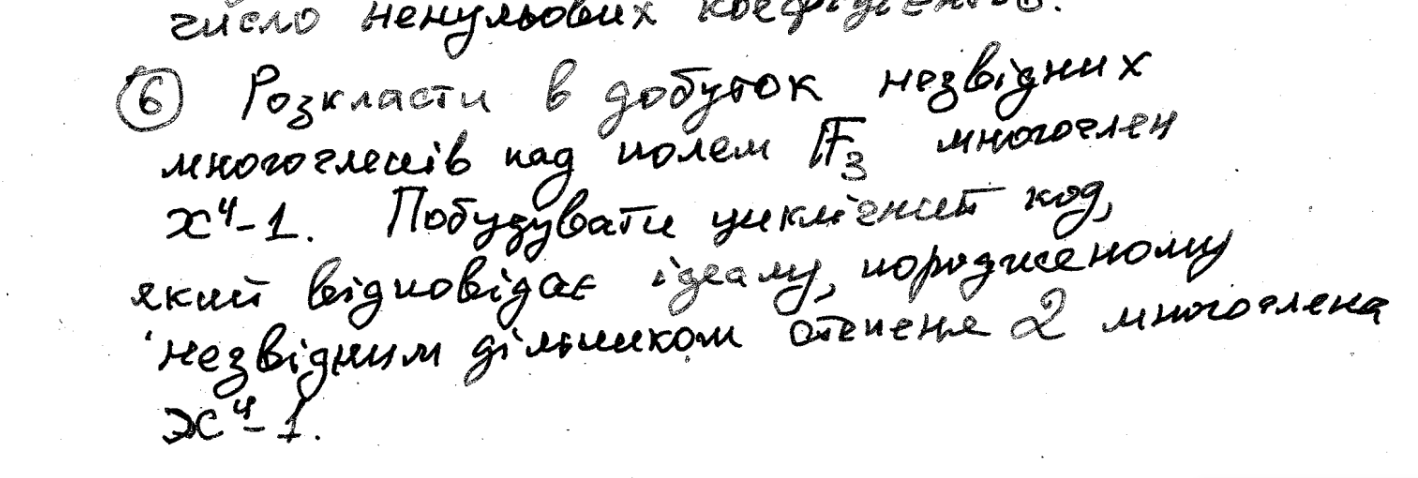 число ненульових коефіцієнтів.
⑥ Розкласти в добуток незвідних
многочленів над полем 𝔽₃ многочлен
x⁴-1. Побудувати циклічний код,
який відповідає ідеалу, породженому
незвідним дільником степеня 2 многочлена
x⁴-1.